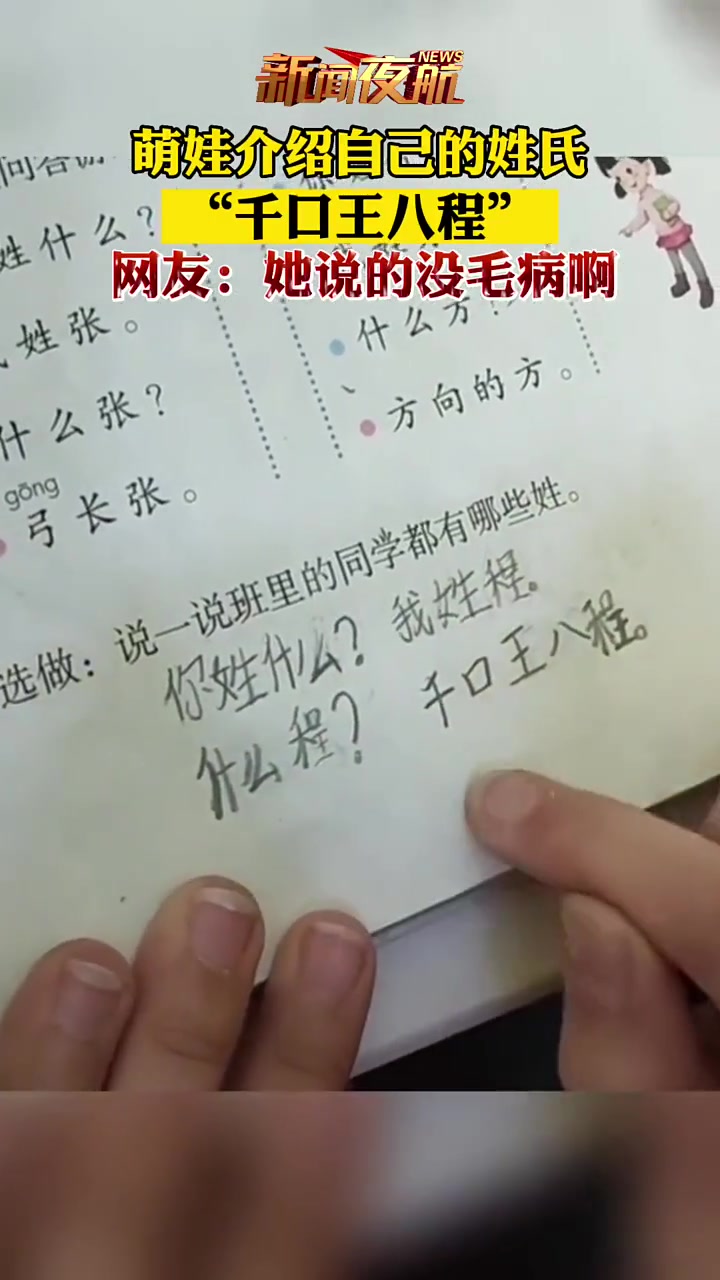 新闻夜航
NEWS
萌娃介绍自己的姓氏
“千口王八程”
网友：她说的没毛病啊
姓什么？
姓张。
什么张？
gōng
弓长张。
什么方？
方向的方。
选做：说一说班里的同学都有哪些姓。
你姓什么？我姓程。
什么程？千口王八程。